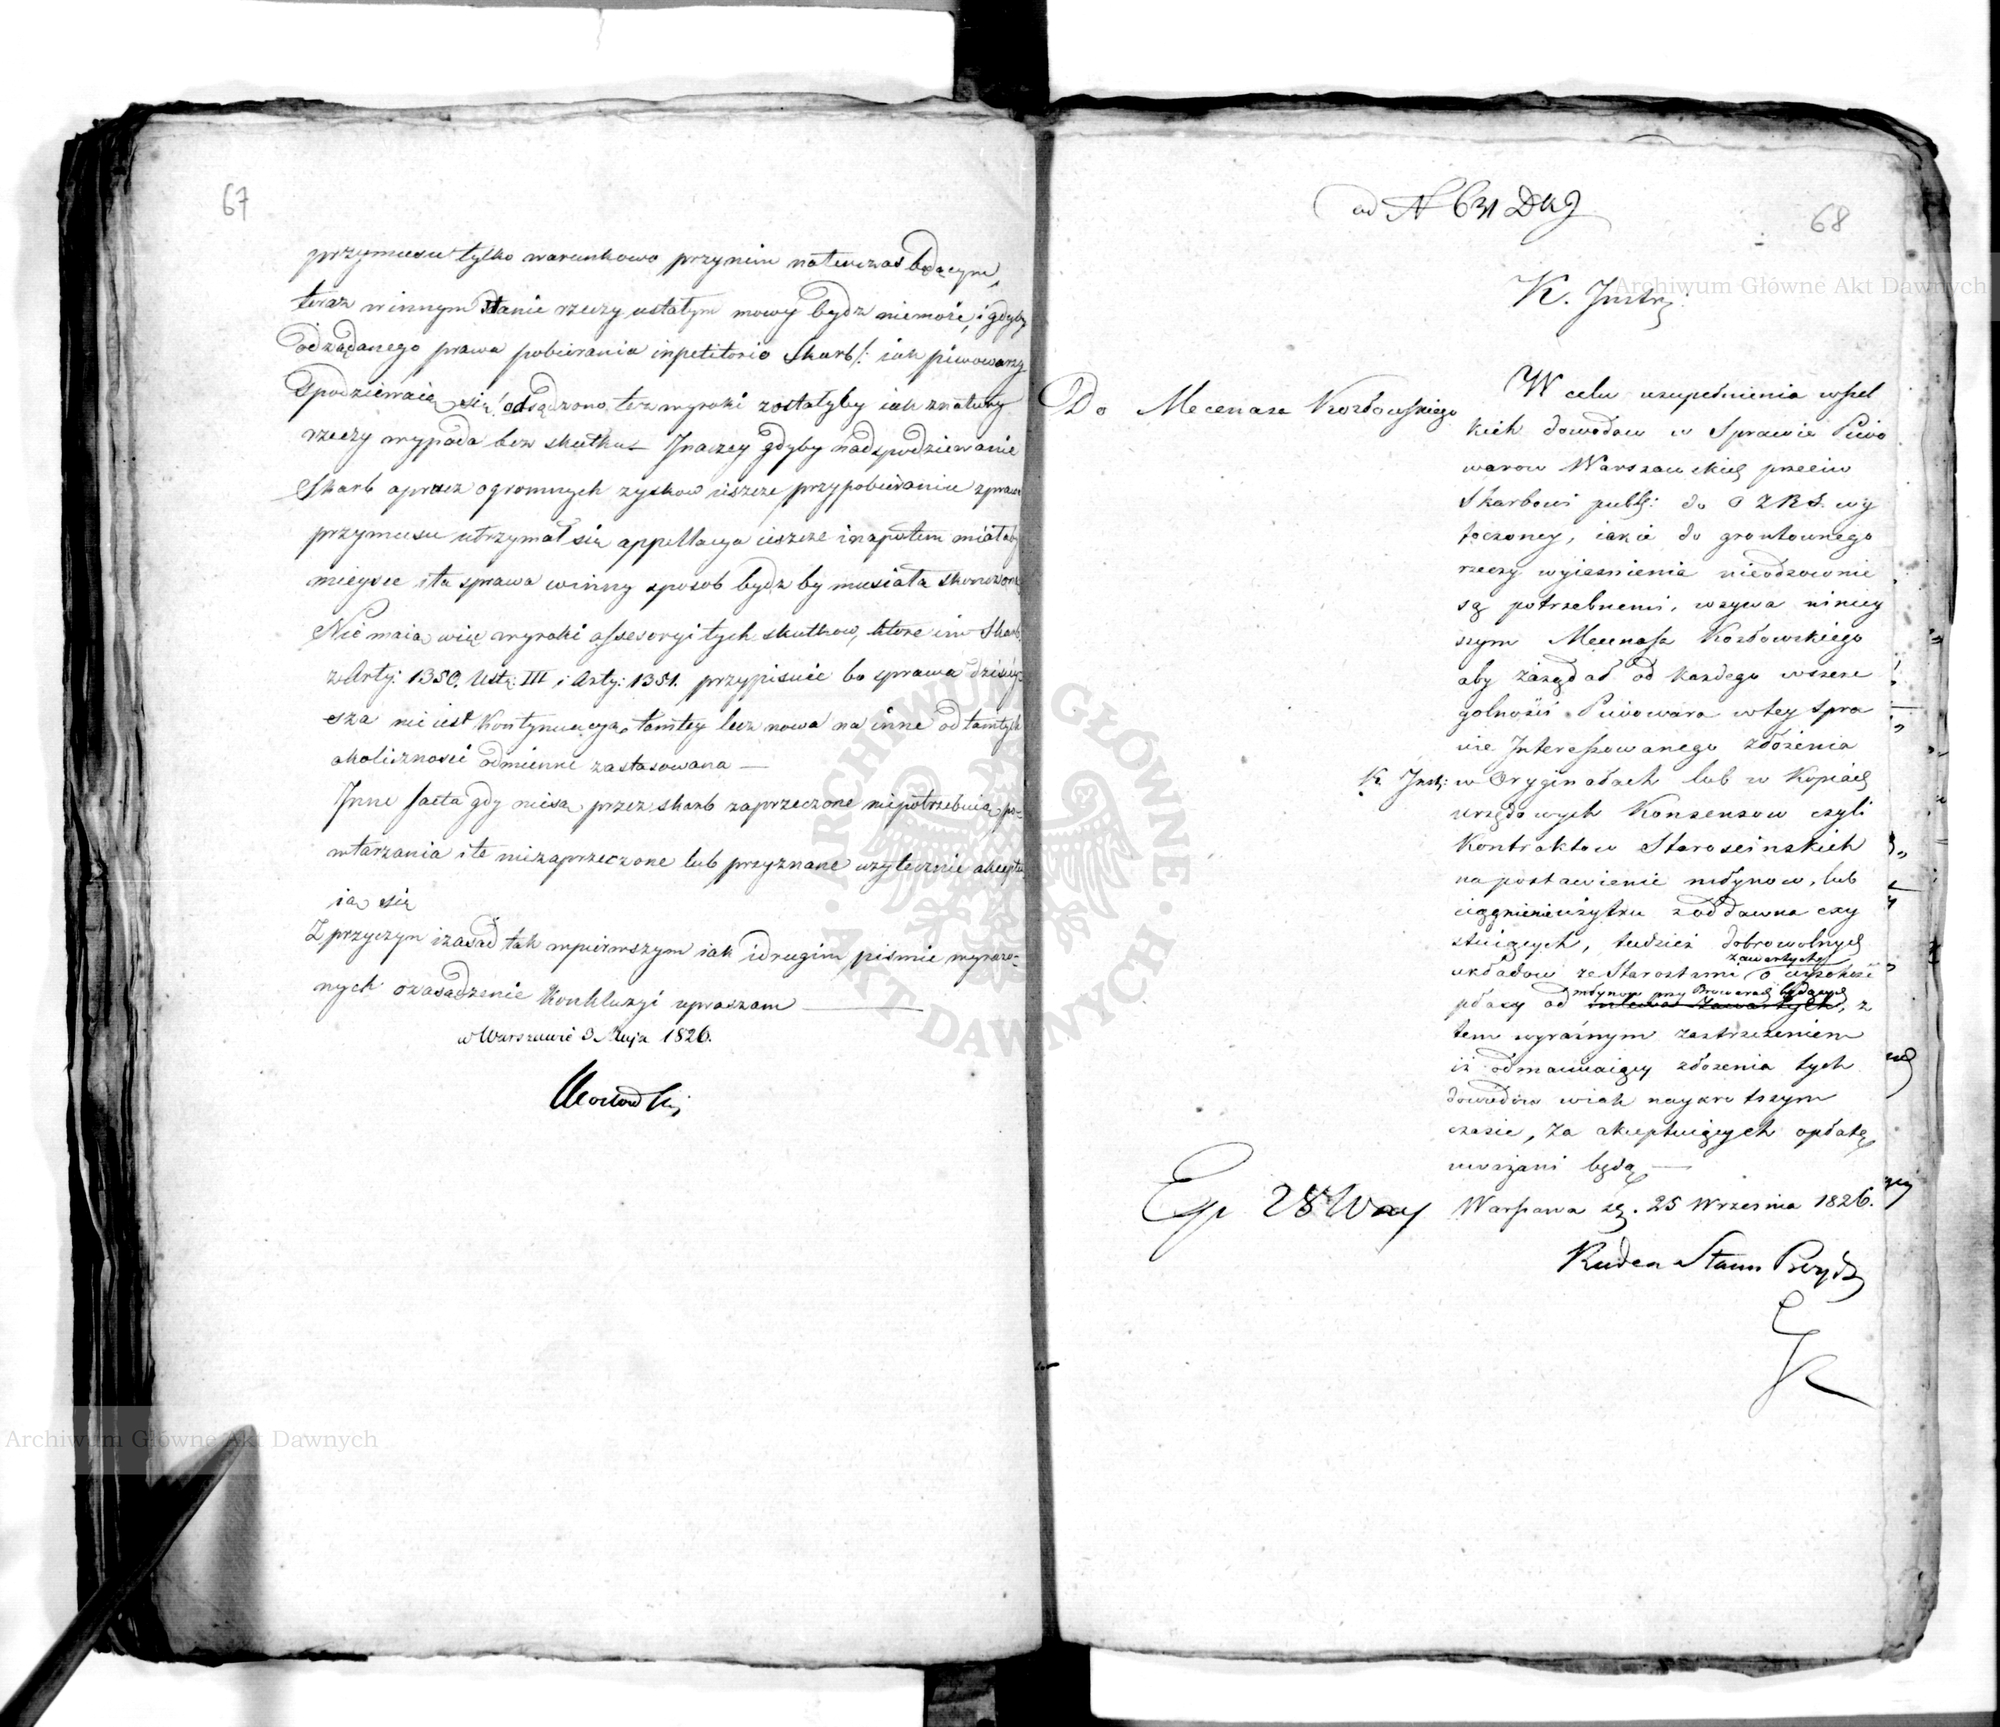 67
przymusu tylko warunkowo przynim natenczas będącym,
teraz winnym stanie rzeczy ustałym mowy bydz niemoże, i gdyby
odżądanego prawa pobierania inpetitorio Skarb /: iak piwowarzy
spodziewaią się odsądzono, też wyroki zostałyby iak znatury
rzeczy wypada bez skutku – Inaczey gdyby nadspodziewanie
Skarb oprócz ogromnych zyskow ieszcze przypobieraniu zprawa
przymusu utrzymał się appellacya ieszcze inapotem miałaby
mieysce i ta sprawa winny sposob bydz by musiała skończona
Nie maią więc wyroki assessoryi tych skutkow, ktore im Skarb
z Arty: 1350. Ustę: III i Arty: 1351. przypisuie bo sprawa dzisiey-
sza nie iest Kontynuacyą tamtey lecz nowa na inne od tamtych
okoliczności odmienne zastosowana —
Inne facta gdy nie są przez skarb zaprzeczone niepotrzebuią po-
wtarzania i te niezaprzeczone lub przyznane użytecznie akceptu
ią się
Z przyczyn i zasad tak wpierwszym iak idrugim pismie wyrażo-
nych ozasądzenie Konkluzyi upraszam
w Warszawie 3 Maja 1826.
ad N 631 DKJ
68
K. Instr:
Do Mecenasa Kozłowskiego
W celu uzupełnienia wszel
kich dowodow w Sprawie Piwo
warow Warszawskich przeciw
Skarbowi publ: do wy
toczoney, iakie do gruntownego
rzeczy wyiasnienia nieodzownie
są potrzebnemi, wzywa niniey
szym Mecenasa Kozłowskiego
aby zażądał od każdego wszcze
golności Piwowara wtey spra
wie Interessowanego złożenia
K. Inst: w Oryginałach lub w Kopiach
urzędowych Konsensow czyli
Kontraktow Starościnskich
na postawienie młynow, lub
ciągnienie użytku zoddawna exy
stuiących, tudzież dobrowolnych
zawartych
układow ze Starostami o wysokość
młynow przy Browarach będących
płacy od, z
tem wyraźnym zastrzeżeniem
iż odmawiaiący złożenia tych
dowodow wiak naykrotszym
czasie, za akceptuiących opłatę
uważani będą —
Exp 28 Wrz
Warszawa d. 25 Września 1826.
Radca Stanu Prezyd